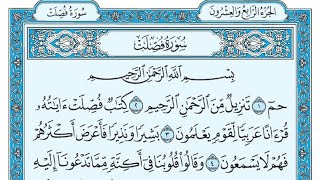 الجزء الرابع والعشرون
سورة فصلت
سُورَةُ فُصِّلَتْ
بِسْمِ اللَّهِ الرَّحْمَٰنِ الرَّحِيمِ
حمٓ ١ تَنزِيلٌ مِّنَ الرَّحْمَٰنِ الرَّحِيمِ ٢ كِتَابٌ فُصِّلَتْ ءَايَاتُهُۥ
قُرْءَانًا عَرَبِيًّا لِّقَوْمٍ يَعْلَمُونَ ٣ بَشِيرًا وَنَذِيرًا فَأَعْرَضَ أَكْثَرُهُمْ
فَهُمْ لَا يَسْمَعُونَ ٤ وَقَالُوا۟ قُلُوبُنَا فِىٓ أَكِنَّةٍ مِّمَّا تَدْعُونَآ إِلَيْهِ